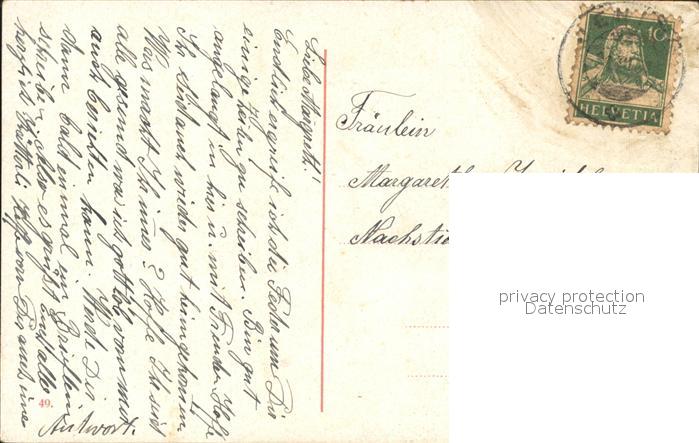 Liebe Margrith!
Endlich ergreife ich die Feder um Dir
einige Zeilen zu schreiben. Bin gut
angelangt in hier u. mit Freuden. Hoffe
Ihr seid auch wieder gut heimgekommen
Was macht Ihr immer? Hoffe Ihr seid
alle gesund was ich gottlob von mir
auch berichten kann. Werde Dir
dann bald einmal ein Brieflein
schreiben. Also es grüsst euch alle
herzlich
Hoffe von Dir auch eine
Antwort.
49.
Fräulein
Margareth
HELVETIA
10
privacy protection
Datenschutz